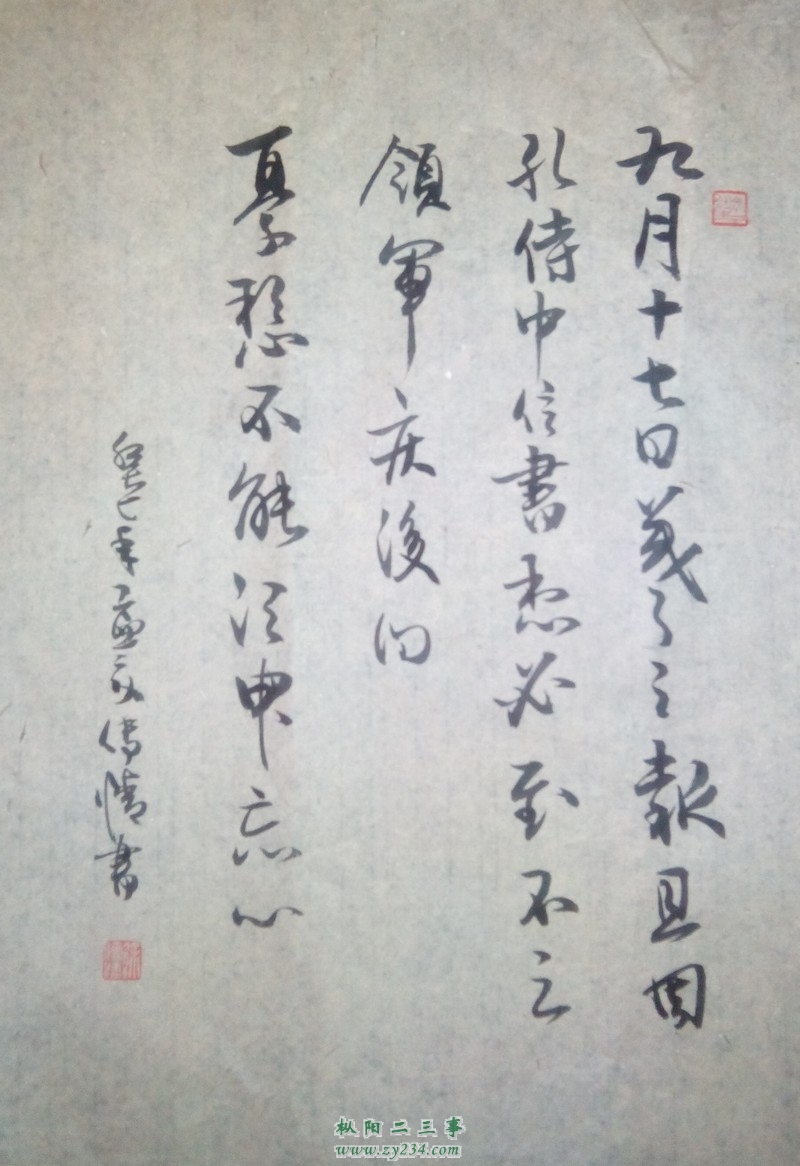 九月十七日羲之報且因
孔侍中信書想必到不知
領軍疾後問
憂懸不能須臾忘心
癸巳年傳情書
枞阳二三事
www.zy234.com